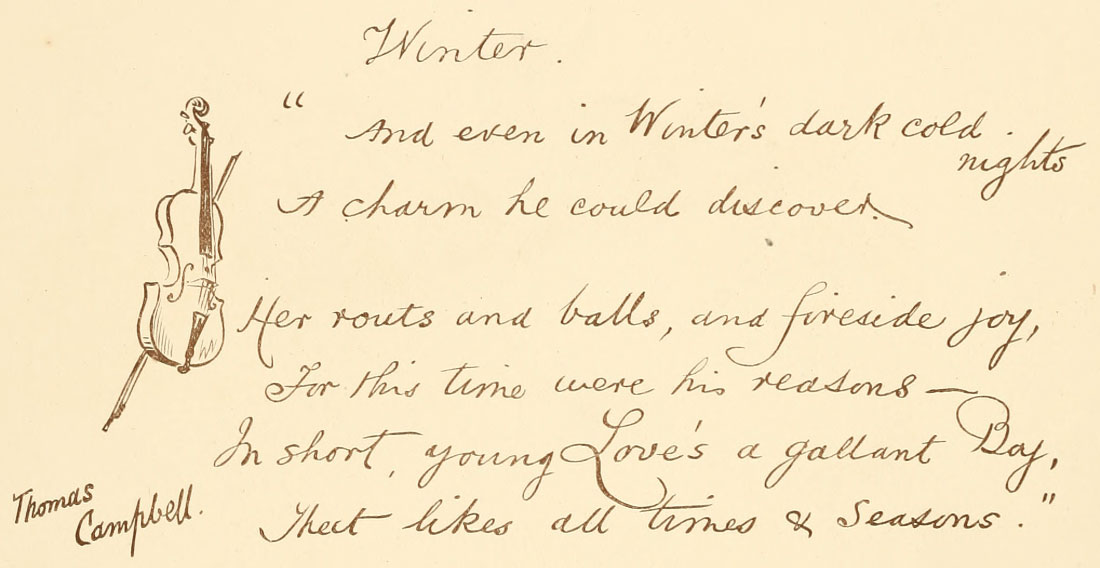 Winter.
"And even in Winter's dark cold nights
A charm he could discover.
Her routs and balls, and fireside joy,
For this time were his reasons —
In short, young Love's a gallant Boy,
That likes all times & Seasons."
Thomas
Campbell.